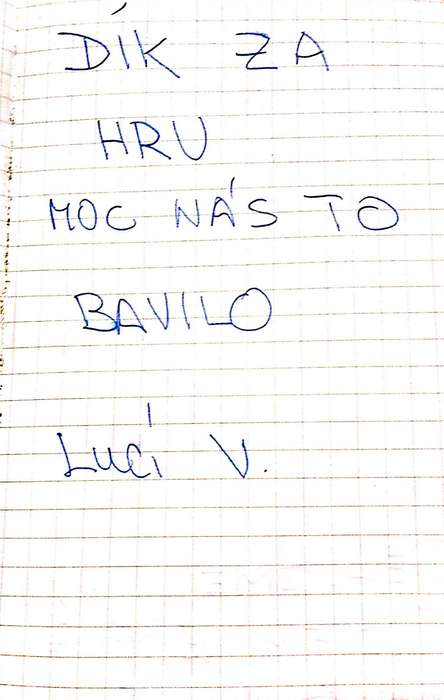 DÍK ZA
HRU
MOC NÁS TO
BAVILO
Lucí V.